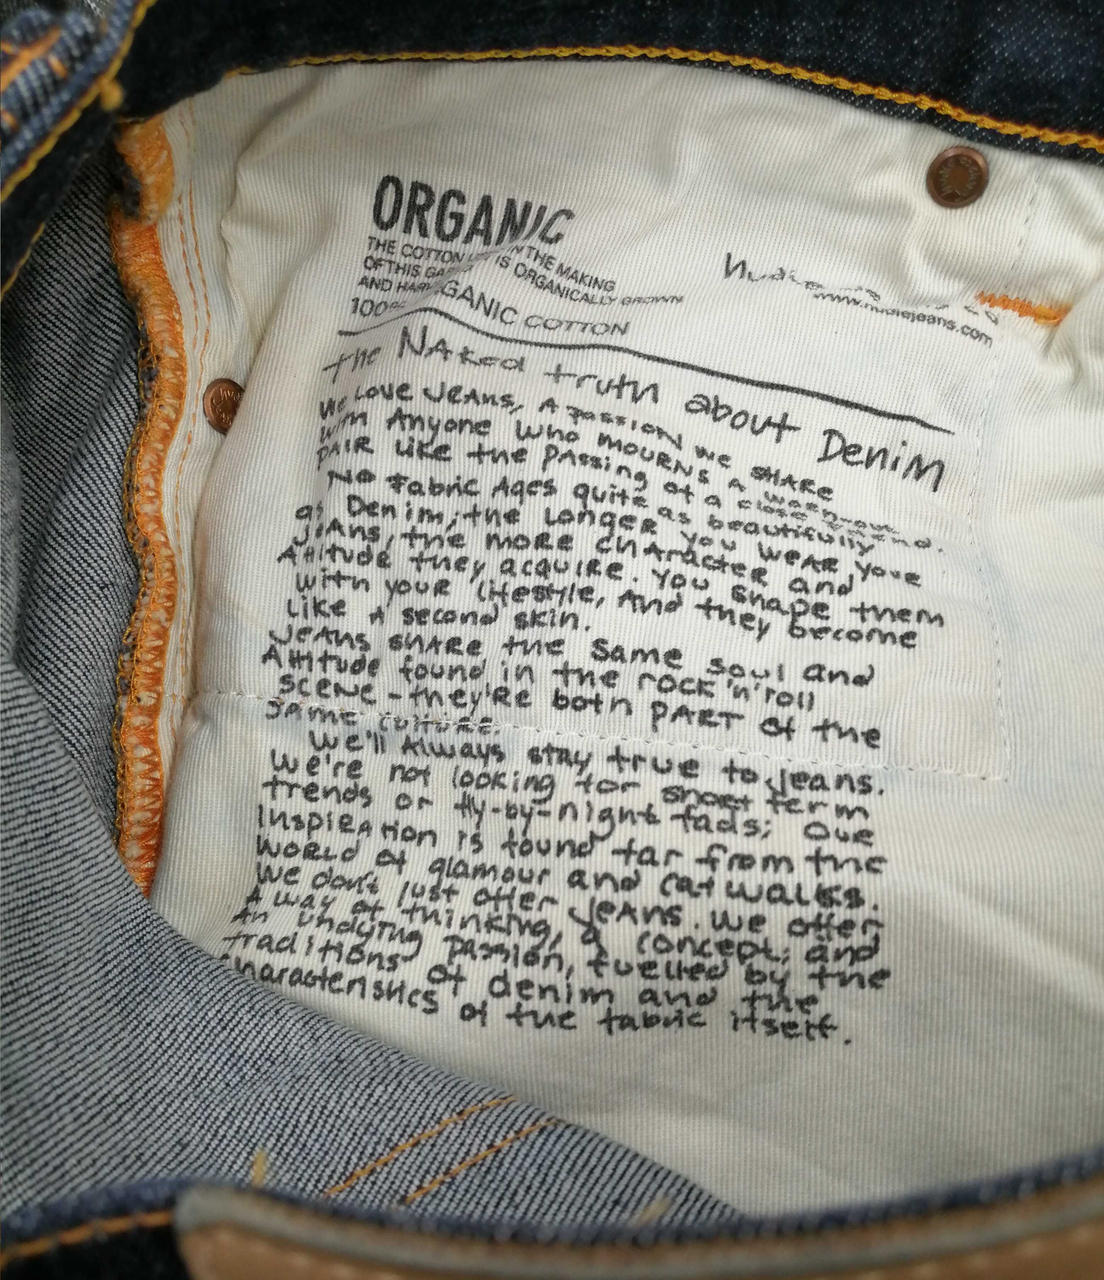 ORGANIC
THE COTTON IN THE MAKING
OF THIS IS ORGANICALLY GROWN
AND
100% ORGANIC COTTON
www.nudiejeans.com
the NAked truth about Denim
We LOVE JEANS, A passion we SHARE
with Anyone who mourns A worn-out
PAIR Like the PASSing of a close friend.
No Fabric Ages quite as beautifully
as Denim, the LONGER you WEAR your
JEANS, the more cHARACTER and
Attitude they acquire. You shape them
with your Lifestyle, And they become
Like A second skin.
JEANS SHARE the same soul and
Attitude found in the rock'n'roll
SCENE - they're both PART of the
SAME culture.
We'll Always stay true to Jeans.
We're not looking for short term
trends or fly-by-night fads; Our
INSPIRATION is found far from the
WORLD of glamour and catwalks.
We don't just offer JEANS. We offer
A way of thinking, a concept; and
An undying passion, fuelled by the
traditions of denim and the
characteristics of the fabric itself.